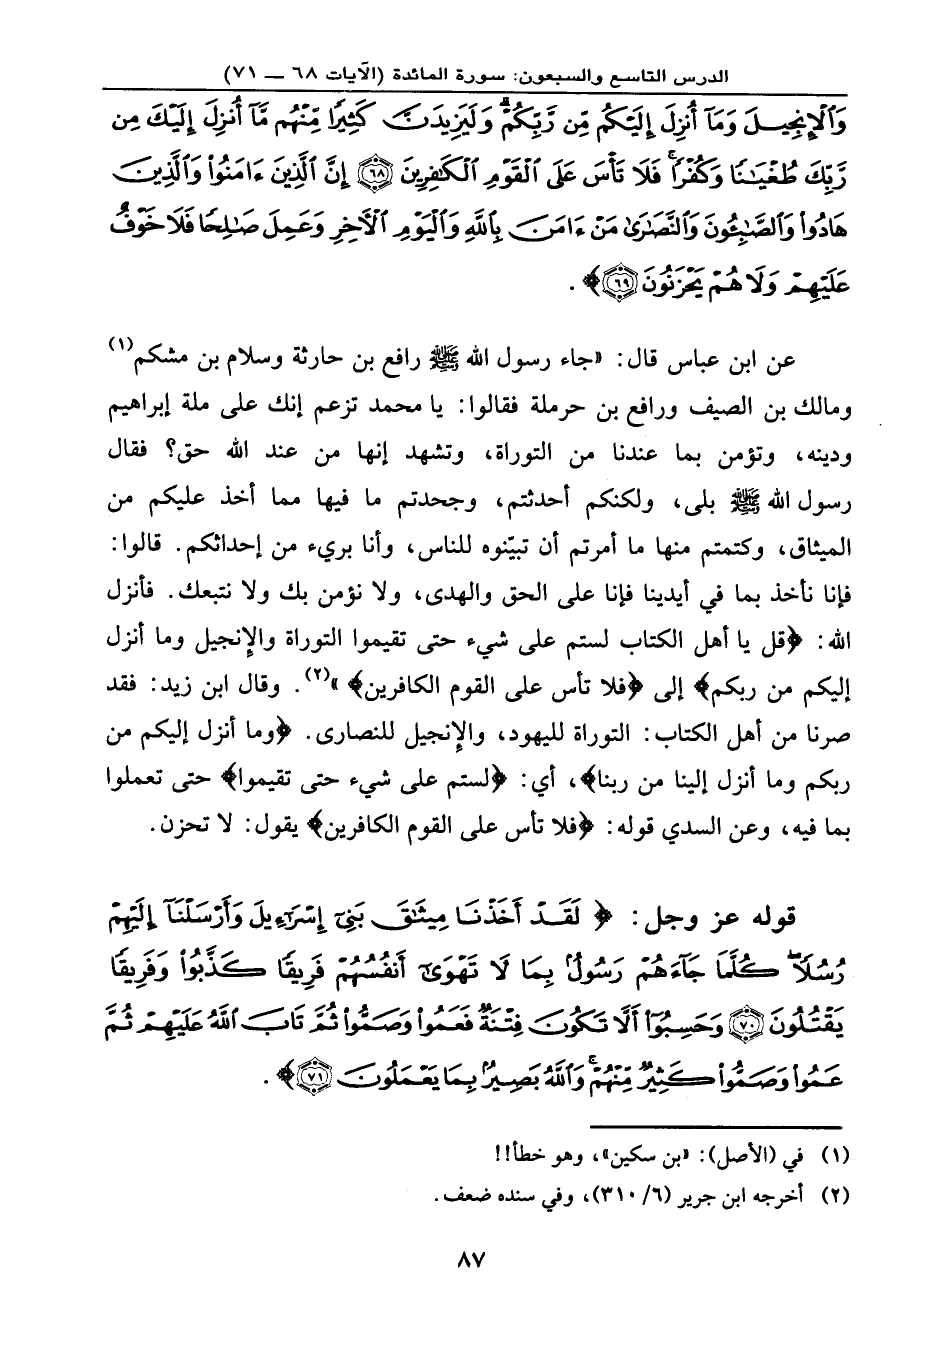 الدرس التاسع والسبعون: سورة المائدة (الآيات ٦٨ ــ ٧١)
وَٱلْإِنجِيلَ وَمَآ أُنزِلَ إِلَيْكُم مِّن رَّبِّكُمْ ۗ وَلَيَزِيدَنَّ كَثِيرًا مِّنْهُم مَّآ أُنزِلَ إِلَيْكَ مِن
رَّبِّكَ طُغْيَٰنًا وَكُفْرًا ۖ فَلَا تَأْسَ عَلَى ٱلْقَوْمِ ٱلْكَٰفِرِينَ ﴿٦٨﴾ إِنَّ ٱلَّذِينَ ءَامَنُوا۟ وَٱلَّذِينَ
هَادُوا۟ وَٱلصَّٰبِـُٔونَ وَٱلنَّصَٰرَىٰ مَنْ ءَامَنَ بِٱللَّهِ وَٱلْيَوْمِ ٱلْءَاخِرِ وَعَمِلَ صَٰلِحًا فَلَا خَوْفٌ
عَلَيْهِمْ وَلَا هُمْ يَحْزَنُونَ ﴿٦٩﴾ ﴾ .
عن ابن عباس قال: «جاء رسول الله ﷺ رافع بن حارثة وسلام بن مشكم(١)
ومالك بن الصيف ورافع بن حرملة فقالوا: يا محمد تزعم إنك على ملة إبراهيم
ودينه، وتؤمن بما عندنا من التوراة، وتشهد إنها من عند الله حق؟ فقال
رسول الله ﷺ بلى، ولكنكم أحدثتم، وجحدتم ما فيها مما أخذ عليكم من
الميثاق، وكتمتم منها ما أمرتم أن تبيّنوه للناس، وأنا بريء من إحداثكم. قالوا:
فإنا نأخذ بما في أيدينا فإنا على الحق والهدى، ولا نؤمن بك ولا نتبعك. فأنزل
الله: ﴿قل يا أهل الكتاب لستم على شيء حتى تقيموا التوراة والإنجيل وما أنزل
إليكم من ربكم﴾ إلى ﴿فلا تأس على القوم الكافرين﴾ »(٢). وقال ابن زيد: فقد
صرنا من أهل الكتاب: التوراة لليهود، والإنجيل للنصارى. ﴿وما أنزل إليكم من
ربكم وما أنزل إلينا من ربنا﴾، أي: ﴿لستم على شيء حتى تقيموا﴾ حتى تعملوا
بما فيه، وعن السدي قوله: ﴿فلا تأس على القوم الكافرين﴾ يقول: لا تحزن.
قوله عز وجل: ﴿ لَقَدْ أَخَذْنَا مِيثَٰقَ بَنِىٓ إِسْرَٰٓءِيلَ وَأَرْسَلْنَآ إِلَيْهِمْ
رُسُلًا ۖ كُلَّمَا جَآءَهُمْ رَسُولٌۢ بِمَا لَا تَهْوَىٰٓ أَنفُسُهُمْ فَرِيقًا كَذَّبُوا۟ وَفَرِيقًا
يَقْتُلُونَ ﴿٧٠﴾ وَحَسِبُوٓا۟ أَلَّا تَكُونَ فِتْنَةٌ فَعَمُوا۟ وَصَمُّوا۟ ثُمَّ تَابَ ٱللَّهُ عَلَيْهِمْ ثُمَّ
عَمُوا۟ وَصَمُّوا۟ كَثِيرٌ مِّنْهُمْ ۚ وَٱللَّهُ بَصِيرٌۢ بِمَا يَعْمَلُونَ ﴿٧١﴾ ﴾ .
(١) في (الأصل): «بن سكين»، وهو خطأ!!
(٢) أخرجه ابن جرير (٦/ ٣١٠)، وفي سنده ضعف.
٨٧